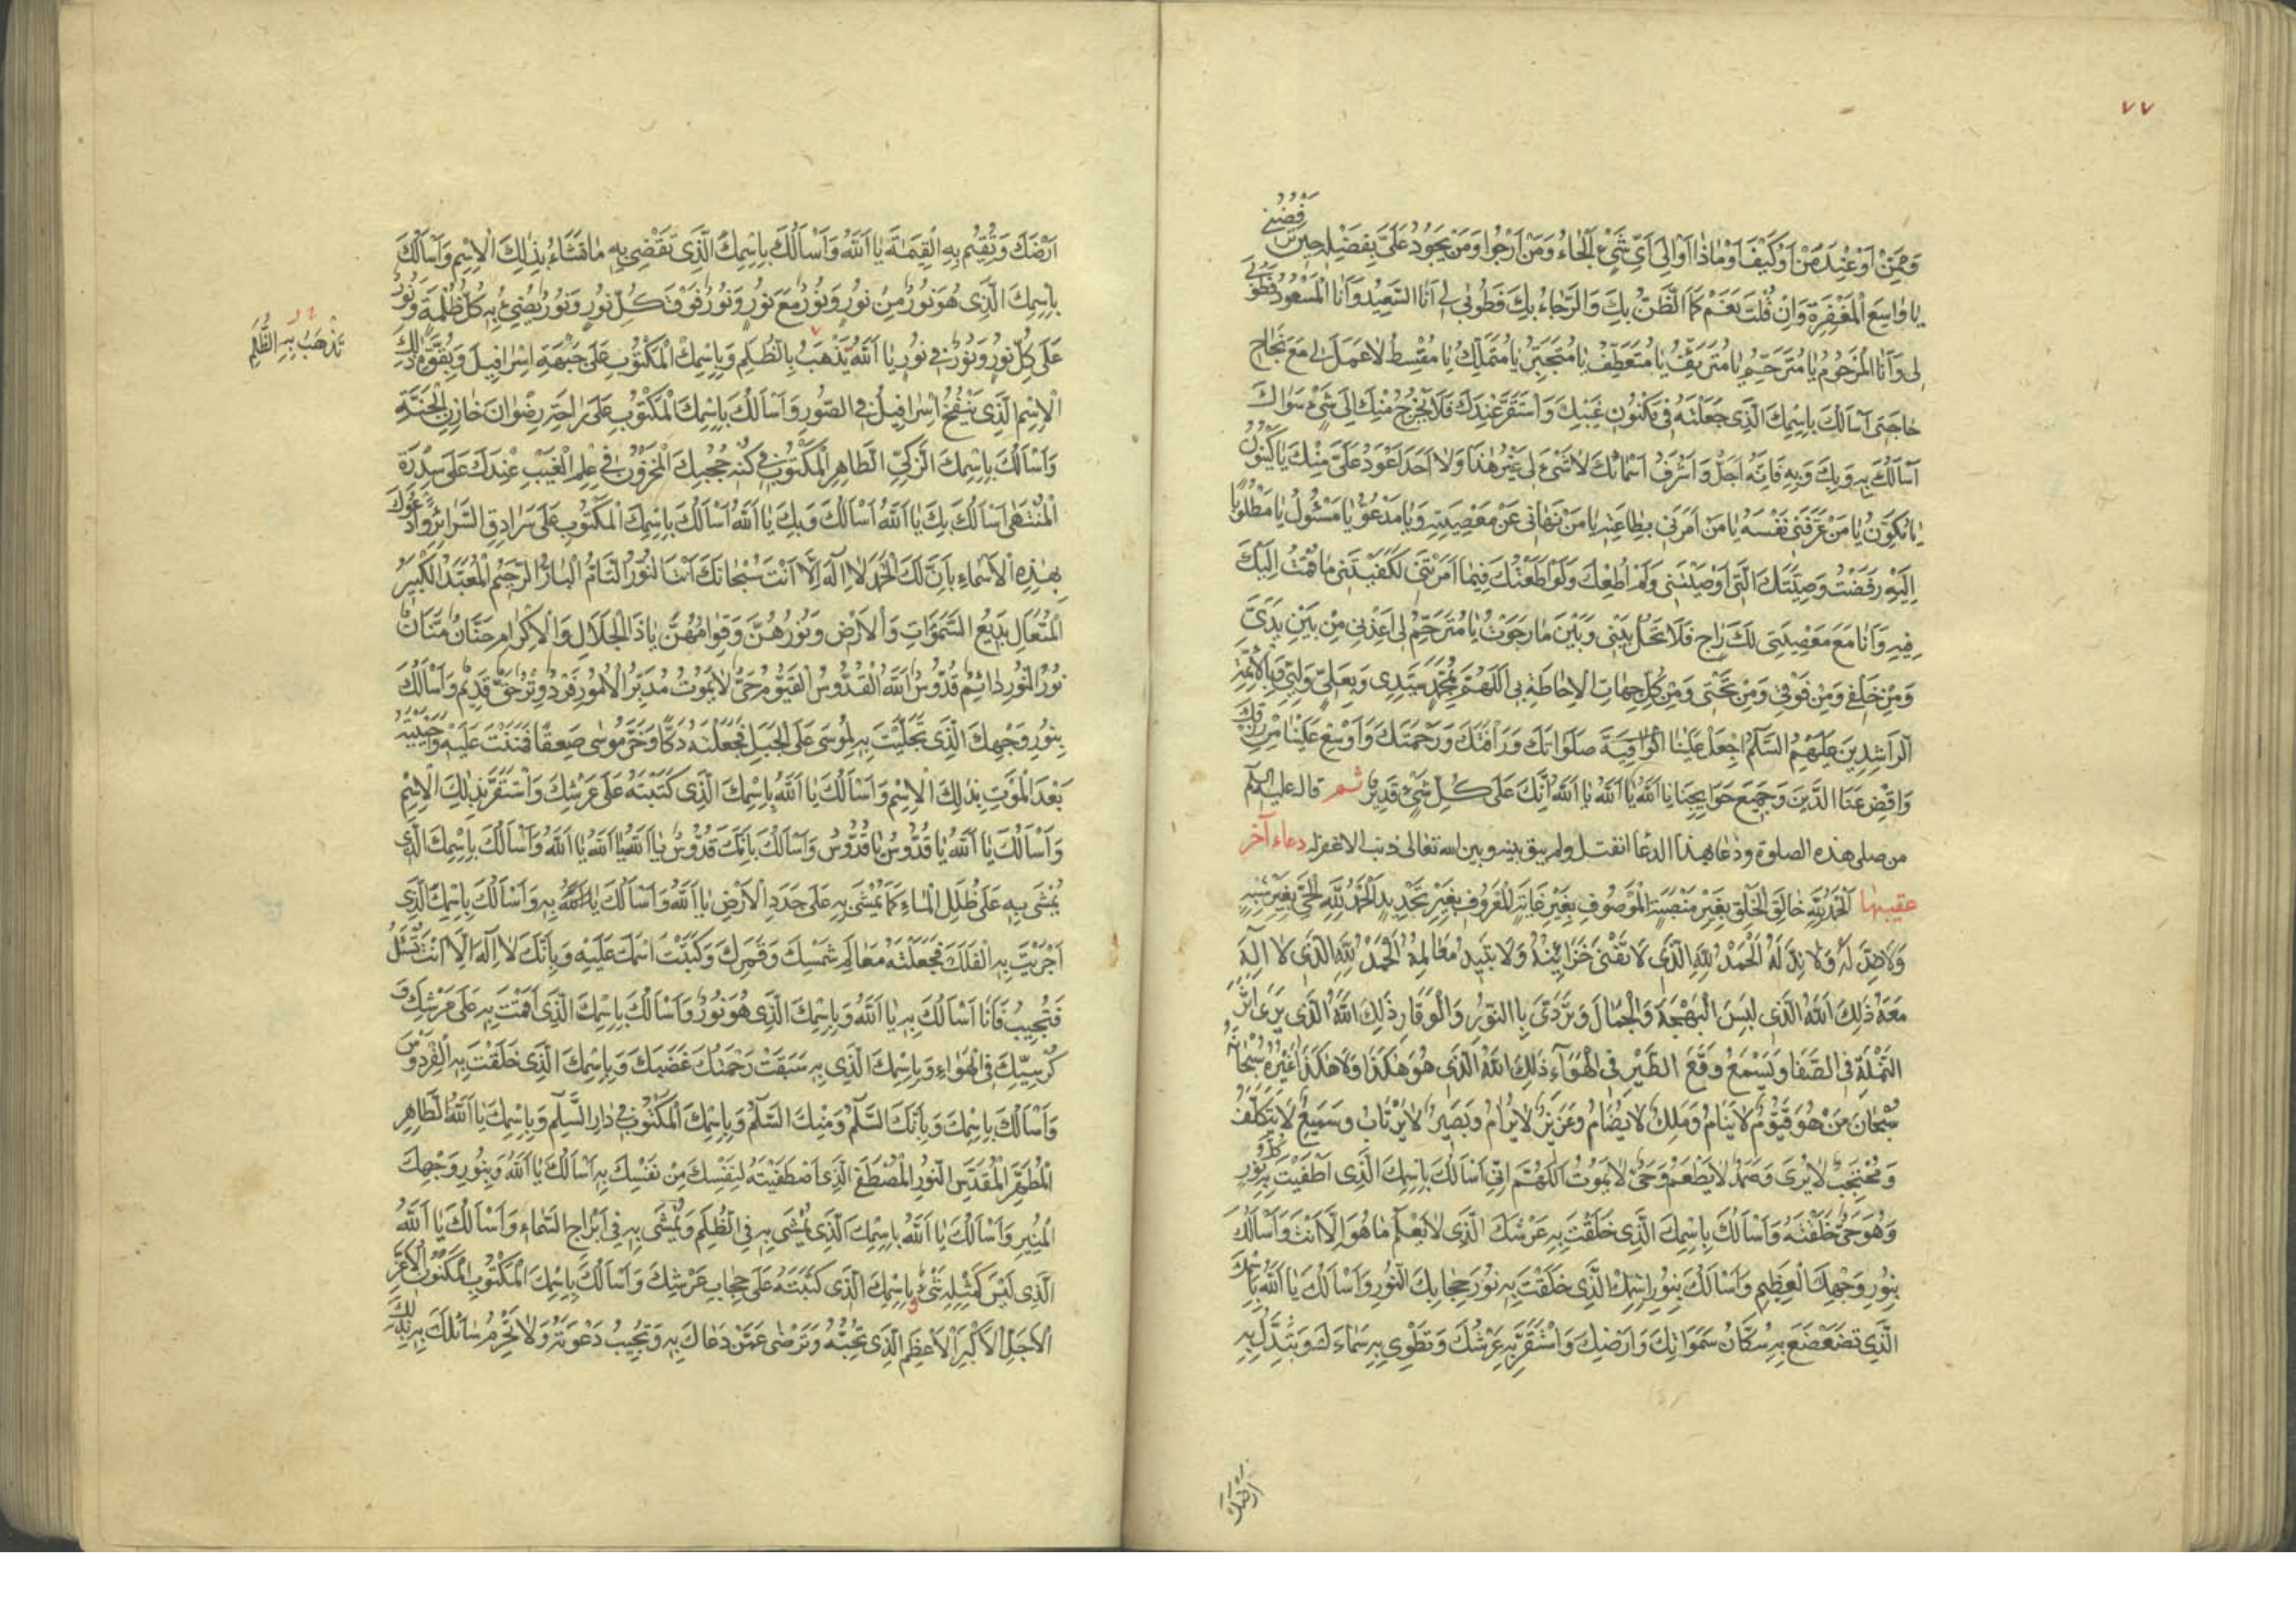 ٧٧
وَمِمَّنْ اَوْ عِنْدَ مَنْ اَوْ كَيْفَ اَوْ مَاذَا اَوْ اِلٰى اَىِّ شَىْءٍ اَلْجَاُ وَمَنْ اَرْجُوا وَمَنْ يَجُودُ عَلَىَّ بِفَضْلِهِ حِينَ تَرْفُضُنِى
يَا وَاسِعَ الْمَغْفِرَةِ وَاِنْ قُلْتَ نَعَمْ كَمَا الظَّنُّ بِكَ وَالرَّجَاءُ بِكَ فَطُوبٰى لِى اَنَا السَّعِيدُ وَاَنَا الْمَسْعُودُ فَطُوبٰى
لِى وَاَنَا الْمَرْحُومُ يَا مُتَرَحِّمُ يَا مُتَرَئِّفُ يَا مُتَعَطِّفُ يَا مُتَجَبِّرُ يَا مُتَمَلِّكُ يَا مُقْسِطُ لَا عَمَلَ لِى مَعَ نَجَاحِ
حَاجَتِى اَسْاَلُكَ بِاسْمِكَ الَّذِى جَعَلْتَهُ فِى مَكْنُونِ غَيْبِكَ وَاسْتَقَرَّ عِنْدَكَ فَلَا يَخْرُجُ مِنْكَ اِلٰى شَىْءٍ سِوَاكَ
اَسْاَلُكَ بِهِ وَبِكَ وَبِهِ فَاِنَّهُ اَجَلُّ وَاَشْرَفُ اَسْمَائِكَ لَا شَىْءَ لِى غَيْرُ هٰذَا وَلَا اَحَدَ اَعْوَدُ عَلَىَّ مِنْكَ يَا كَيْنُونُ
يَا مُكَوِّنُ يَا مَنْ عَرَّفَنِى نَفْسَهُ يَا مَنْ اَمَرَنِى بِطَاعَتِهِ يَا مَنْ نَهَانِى عَنْ مَعْصِيَتِهِ وَيَا مَدْعُوُّ يَا مَسْئُولُ يَا مَطْلُوبًا
اِلَيْهِ رَفَضْتُ وَصِيَّتَكَ الَّتِى اَوْصَيْتَنِى وَلَمْ اُطِعْكَ وَلَوْ اَطَعْتُكَ فِيمَا اَمَرْتَنِى لَكَفَيْتَنِى مَا قُمْتُ اِلَيْكَ
فِيهِ وَاَنَا مَعَ مَعْصِيَتِى لَكَ رَاجٍ فَلَا تَحُلْ بَيْنِى وَبَيْنَ مَا رَجَوْتُ يَا مُتَرَحِّمُ لِى اَعِذْنِى مِنْ بَيْنِ يَدَىَّ
وَمِنْ خَلْفِى وَمِنْ فَوْقِى وَمِنْ تَحْتِى وَمِنْ كُلِّ جِهَاتِ الْاِحَاطَةِ بِى اَللّٰهُمَّ بِمُحَمَّدٍ سَيِّدِى وَبِعَلِىٍّ وَلِيِّى وَبِالْاَئِمَّةِ
الرَّاشِدِينَ عَلَيْهِمُ السَّلٰمُ اجْعَلْ عَلَيْنَا صَلَوَاتِكَ وَرَاْفَتَكَ وَرَحْمَتَكَ وَاَوْسِعْ عَلَيْنَا مِنْ رِزْقِكَ
وَاقْضِ عَنَّا الدَّيْنَ وَجَمِيعَ حَوَايِجِنَا يَا اَللّٰهُ يَا اَللّٰهُ يَا اَللّٰهُ اِنَّكَ عَلٰى كُلِّ شَىْءٍ قَدِيرٌ ثم قال عليه السلم
من صلى هذه الصلوة ودعا بهذا الدعا انفتل ولم يبق بينه وبين الله تعالى ذنب الا غفر له دعاء آخر
عقيبها اَلْحَمْدُ لِلّٰهِ خَالِقِ الْخَلْقِ بِغَيْرِ مَنْصَبَةٍ الْمَوْصُوفِ بِغَيْرِ غَايَةٍ الْمَعْرُوفِ بِغَيْرِ تَحْدِيدٍ اَلْحَمْدُ لِلّٰهِ الْحَىِّ بِغَيْرِ شِبْهٍ
وَلَا ضِدَّ لَهُ وَلَا نِدَّ لَهُ اَلْحَمْدُ لِلّٰهِ الَّذِى لَا تَفْنٰى خَزَائِنُهُ وَلَا تَبِيدُ مَعَالِمُهُ اَلْحَمْدُ لِلّٰهِ الَّذِى لَا اِلٰهَ
مَعَهُ ذٰلِكَ اَللّٰهُ الَّذِى لَبِسَ الْبَهْجَةَ وَالْجَمَالَ وَتَرَدّٰى بِالنُّورِ وَالْوَقَارِ ذٰلِكَ اَللّٰهُ الَّذِى يَرٰى اَثَرَ
النَّمْلَةِ فِى الصَّفَا وَيَسْمَعُ وَقْعَ الطَّيْرِ فِى الْهَوَاءِ ذٰلِكَ اللّٰهُ الَّذِى هُوَ هٰكَذَا وَلَا هٰكَذَا غَيْرُهُ سُبْحَانَهُ
سُبْحَانَ مَنْ هُوَ قَيُّومٌ لَا يَنَامُ وَمَلِكٌ لَا يُضَامُ وَعَزِيزٌ لَا يُرَامُ وَبَصِيرٌ لَا يَرْتَابُ وَسَمِيعٌ لَا يَتَكَلَّفُ
وَمُحْتَجِبٌ لَا يُرٰى وَصَمَدٌ لَا يَطْعَمُ وَحَىٌّ لَا يَمُوتُ اَللّٰهُمَّ اِنِّى اَسْاَلُكَ بِاسْمِكَ الَّذِى اَطْفَيْتَ بِهِ كُلَّ نُورٍ
وَهُوَ حَىٌّ خَلَقْتَهُ وَاَسْاَلُكَ بِاسْمِكَ الَّذِى خَلَقْتَ بِهِ عَرْشَكَ الَّذِى لَا يَعْلَمُ مَا هُوَ اِلَّا اَنْتَ وَاَسْاَلُكَ
بِنُورِ وَجْهِكَ الْعَظِيمِ وَاَسْاَلُكَ بِنُورِ اسْمِكَ الَّذِى خَلَقْتَ بِهِ نُورَ حِجَابِكَ النُّورِ وَاَسْاَلُكَ يَا اَللّٰهُ بِاسْمِكَ
الَّذِى تَضَعْضَعَ بِهِ سُكَّانُ سَمَوَاتِكَ وَاَرْضِكَ وَاسْتَقَرَّ بِهِ عَرْشُكَ وَتَطْوِى بِهِ سَمَاءَكَ وَتُبَدِّلُ بِهِ
اَرْضَكَ
اَرْضَكَ وَتُقِيمُ بِهِ الْقِيٰمَةَ يَا اَللّٰهُ وَاَسْاَلُكَ بِاسْمِكَ الَّذِى تَقْضِى بِهِ مَا تَشَاءُ بِذٰلِكَ الْاِسْمِ وَاَسْاَلُكَ
بِاسْمِكَ الَّذِى هُوَ نُورٌ مِنْ نُورٍ وَنُورٌ مَعَ نُورٍ وَنُورٌ فَوْقَ كُلِّ نُورٍ وَنُورٌ يُضِىءُ بِهِ كُلُّ ظُلْمَةٍ وَنُورٌ
عَلٰى كُلِّ نُورٍ وَنُورٌ فِى نُورٍ يَا اَللّٰهُ يَذْهَبُ بِالظُّلَمِ وَبِاسْمِكَ الْمَكْتُوبِ عَلٰى جَبْهَةِ اِسْرَافِيلَ وَبِقُوَّةِ ذٰلِكَ
تَذْهَبُ بِهِ الظُّلَمُ
الْاِسْمِ الَّذِى يَنْفُخُ اِسْرَافِيلُ فِى الصُّورِ وَاَسْاَلُكَ بِاسْمِكَ الْمَكْتُوبِ عَلٰى رَاحَةِ رِضْوَانَ خَازِنِ الْجَنَّةِ
وَاَسْاَلُكَ بِاسْمِكَ الزَّكِىِّ الطَّاهِرِ الْمَكْتُوبِ فِى كُنْهِ حُجُبِكَ الْمَخْزُونِ فِى عِلْمِ الْغَيْبِ عِنْدَكَ عَلٰى سِدْرَةِ
الْمُنْتَهٰى اَسْاَلُكَ بِكَ يَا اَللّٰهُ اَسْاَلُكَ وَبِكَ يَا اَللّٰهُ اَسْاَلُكَ بِاسْمِكَ الْمَكْتُوبِ عَلٰى سُرَادِقِ السَّرَائِرِ وَاَدْعُوكَ
بِهٰذِهِ الْاَسْمَاءِ بِاَنَّ لَكَ الْحَمْدَ لَا اِلٰهَ اِلَّا اَنْتَ سُبْحَانَكَ اَنْتَ النُّورُ التَّامُّ الْبَارُّ الرَّحِيمُ الْمُعِيدُ الْكَبِيرُ
الْمُتَعَالِ بَدِيعُ السَّمَوَاتِ وَالْاَرْضِ وَنُورُهُنَّ وَقِوَامُهُنَّ يَا ذَا الْجَلَالِ وَالْاِكْرَامِ حَنَّانٌ مَنَّانٌ
نُورُ النُّورِ دَائِمٌ قُدُّوسٌ اَللّٰهُ الْقُدُّوسُ الْقَيُّومُ حَىٌّ لَا يَمُوتُ مُدَبِّرُ الْاُمُورِ فَرْدٌ وِتْرٌ حَقٌّ قَدِيمٌ وَاَسْاَلُكَ
بِنُورِ وَجْهِكَ الَّذِى تَجَلَّيْتَ بِهِ لِمُوسٰى عَلَى الْجَبَلِ فَجَعَلْتَهُ دَكًّا وَخَرَّ مُوسٰى صَعِقًا فَمَنَنْتَ عَلَيْهِ وَاَحْيَيْتَهُ
بَعْدَ الْمَوْتِ بِذٰلِكَ الْاِسْمِ وَاَسْاَلُكَ يَا اَللّٰهُ بِاسْمِكَ الَّذِى كَتَبْتَهُ عَلٰى عَرْشِكَ وَاسْتَقَرَّ بِذٰلِكَ الْاِسْمِ
وَاَسْاَلُكَ يَا اَللّٰهُ يَا قُدُّوسُ يَا قُدُّوسُ وَاَسْاَلُكَ بِاَنَّكَ قُدُّوسٌ يَا اَللّٰهُ يَا اَللّٰهُ يَا اَللّٰهُ وَاَسْاَلُكَ بِاسْمِكَ الَّذِى
يُمْشٰى بِهِ عَلٰى ظُلَلِ الْمَاءِ كَمَا يُمْشٰى بِهِ عَلٰى جَدَدِ الْاَرْضِ يَا اَللّٰهُ وَاَسْاَلُكَ يَا اَللّٰهُ بِهِ وَاَسْاَلُكَ بِاسْمِكَ الَّذِى
اَجْرَيْتَ بِهِ الْفَلَكَ فَجَعَلْتَهُ مَعَالِمَ شَمْسِكَ وَقَمَرِكَ وَكَتَبْتَ اسْمَكَ عَلَيْهِ وَبِاَنَّكَ لَا اِلٰهَ اِلَّا اَنْتَ تُسْئَلُ
فَتُجِيبُ فَاَنَا اَسْاَلُكَ بِهِ يَا اَللّٰهُ وَبِاسْمِكَ الَّذِى هُوَ نُورٌ وَاَسْاَلُكَ بِاسْمِكَ الَّذِى اَقَمْتَ بِهِ عَلٰى عَرْشِكَ وَ
كُرْسِيِّكَ فِى الْهَوَاءِ وَبِاسْمِكَ الَّذِى بِهِ سَبَقَتْ رَحْمَتُكَ غَضَبَكَ وَبِاسْمِكَ الَّذِى خَلَقْتَ بِهِ الْفِرْدَوْسَ
وَاَسْاَلُكَ بِاسْمِكَ وَبِاَنَّكَ السَّلٰمُ وَمِنْكَ السَّلٰمُ وَبِاسْمِكَ الْمَكْتُوبِ فِى دَارِ السَّلٰمِ وَبِاسْمِكَ يَا اَللّٰهُ الطَّاهِرِ
الْمُطَهَّرِ الْمُقَدَّسِ النُّورِ الْمُصْطَفَى الَّذِى اصْطَفَيْتَهُ لِنَفْسِكَ مِنْ نَفْسِكَ بِهِ اَسْاَلُكَ يَا اَللّٰهُ وَبِنُورِ وَجْهِكَ
الْمُنِيرِ وَاَسْاَلُكَ يَا اَللّٰهُ بِاسْمِكَ الَّذِى يُمْشٰى بِهِ فِى الظُّلَمِ وَيُمْشٰى بِهِ فِى اَبْرَاجِ السَّمَاءِ وَاَسْاَلُكَ يَا اَللّٰهُ
الَّذِى لَيْسَ كَمِثْلِهِ شَىْءٌ وبِاسْمِكَ الَّذِى كَتَبْتَهُ عَلٰى حِجَابِ عَرْشِكَ وَاَسْاَلُكَ بِاسْمِكَ الْمَكْتُوبِ الْمَكْنُونِ الْاَعَزِّ
الْاَجَلِّ الْاَكْبَرِ الْاَعْظَمِ الَّذِى تُحِبُّهُ وَتَرْضٰى عَمَّنْ دَعَاكَ بِهِ وَتُجِيبُ دَعْوَتَهُ وَلَا تَحْرِمُ سَائِلَكَ بِهِ بِذٰلِكَ